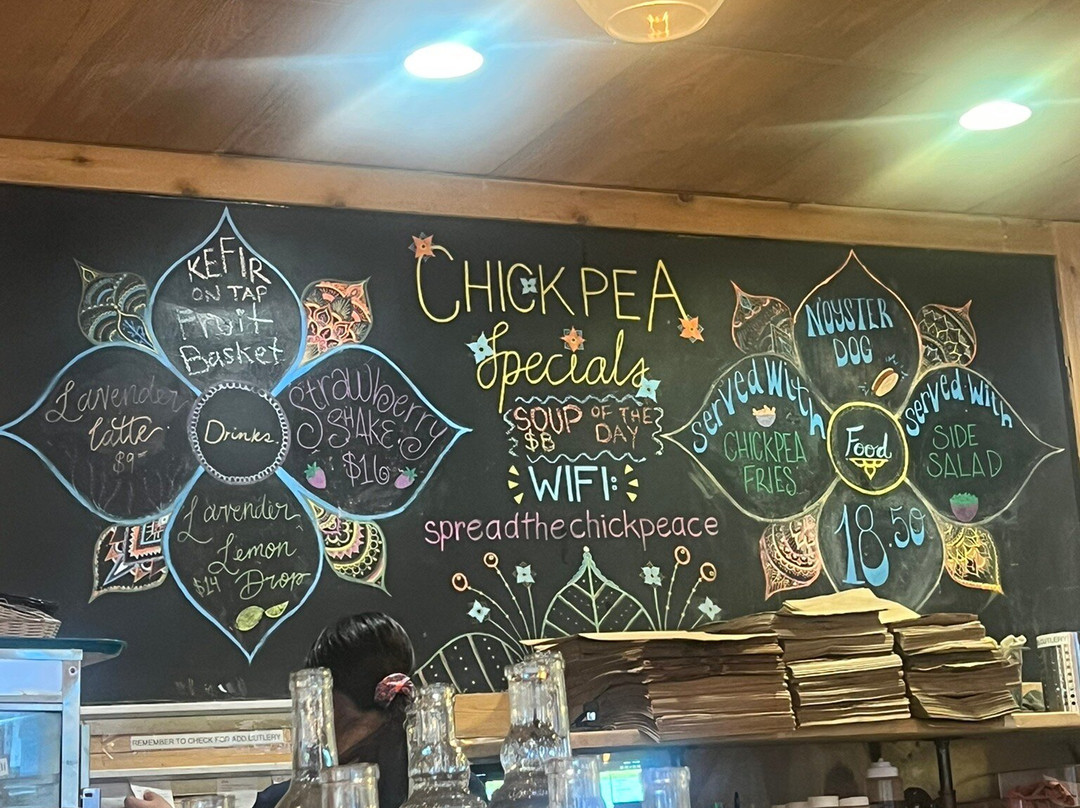 KEFIR
ON TAP
Fruit
Basket
Lavender
latte
$9
Drinks
Strawberry
SHAKE
$16
Lavender
Lemon
Drop
$14
CHICKPEA
Specials
SOUP OF THE
$8 DAY
WIFI:
spreadthechickpeace
NOYSTER
DOG
Served With
CHICKPEA
FRIES
Food
Served With
SIDE
SALAD
18.50
REMEMBER TO CHECK FOR ADD CUTLERY
CUTLERY